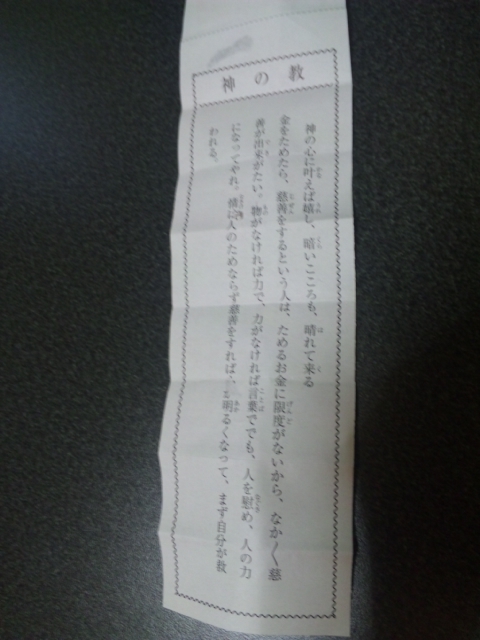 神の教
神の心に叶えば嬉し、暗いこころも、晴れて来る
金をためたら、慈善をするという人は、ためるお金に限度がないから、なか〳〵慈
善が出来がたい。物がなければ力で、力がなければ言葉ででも、人を慰め、人の力
になってやれ。情に人のためならず慈善をすれば、明るくなって、まず自分が救
われる。